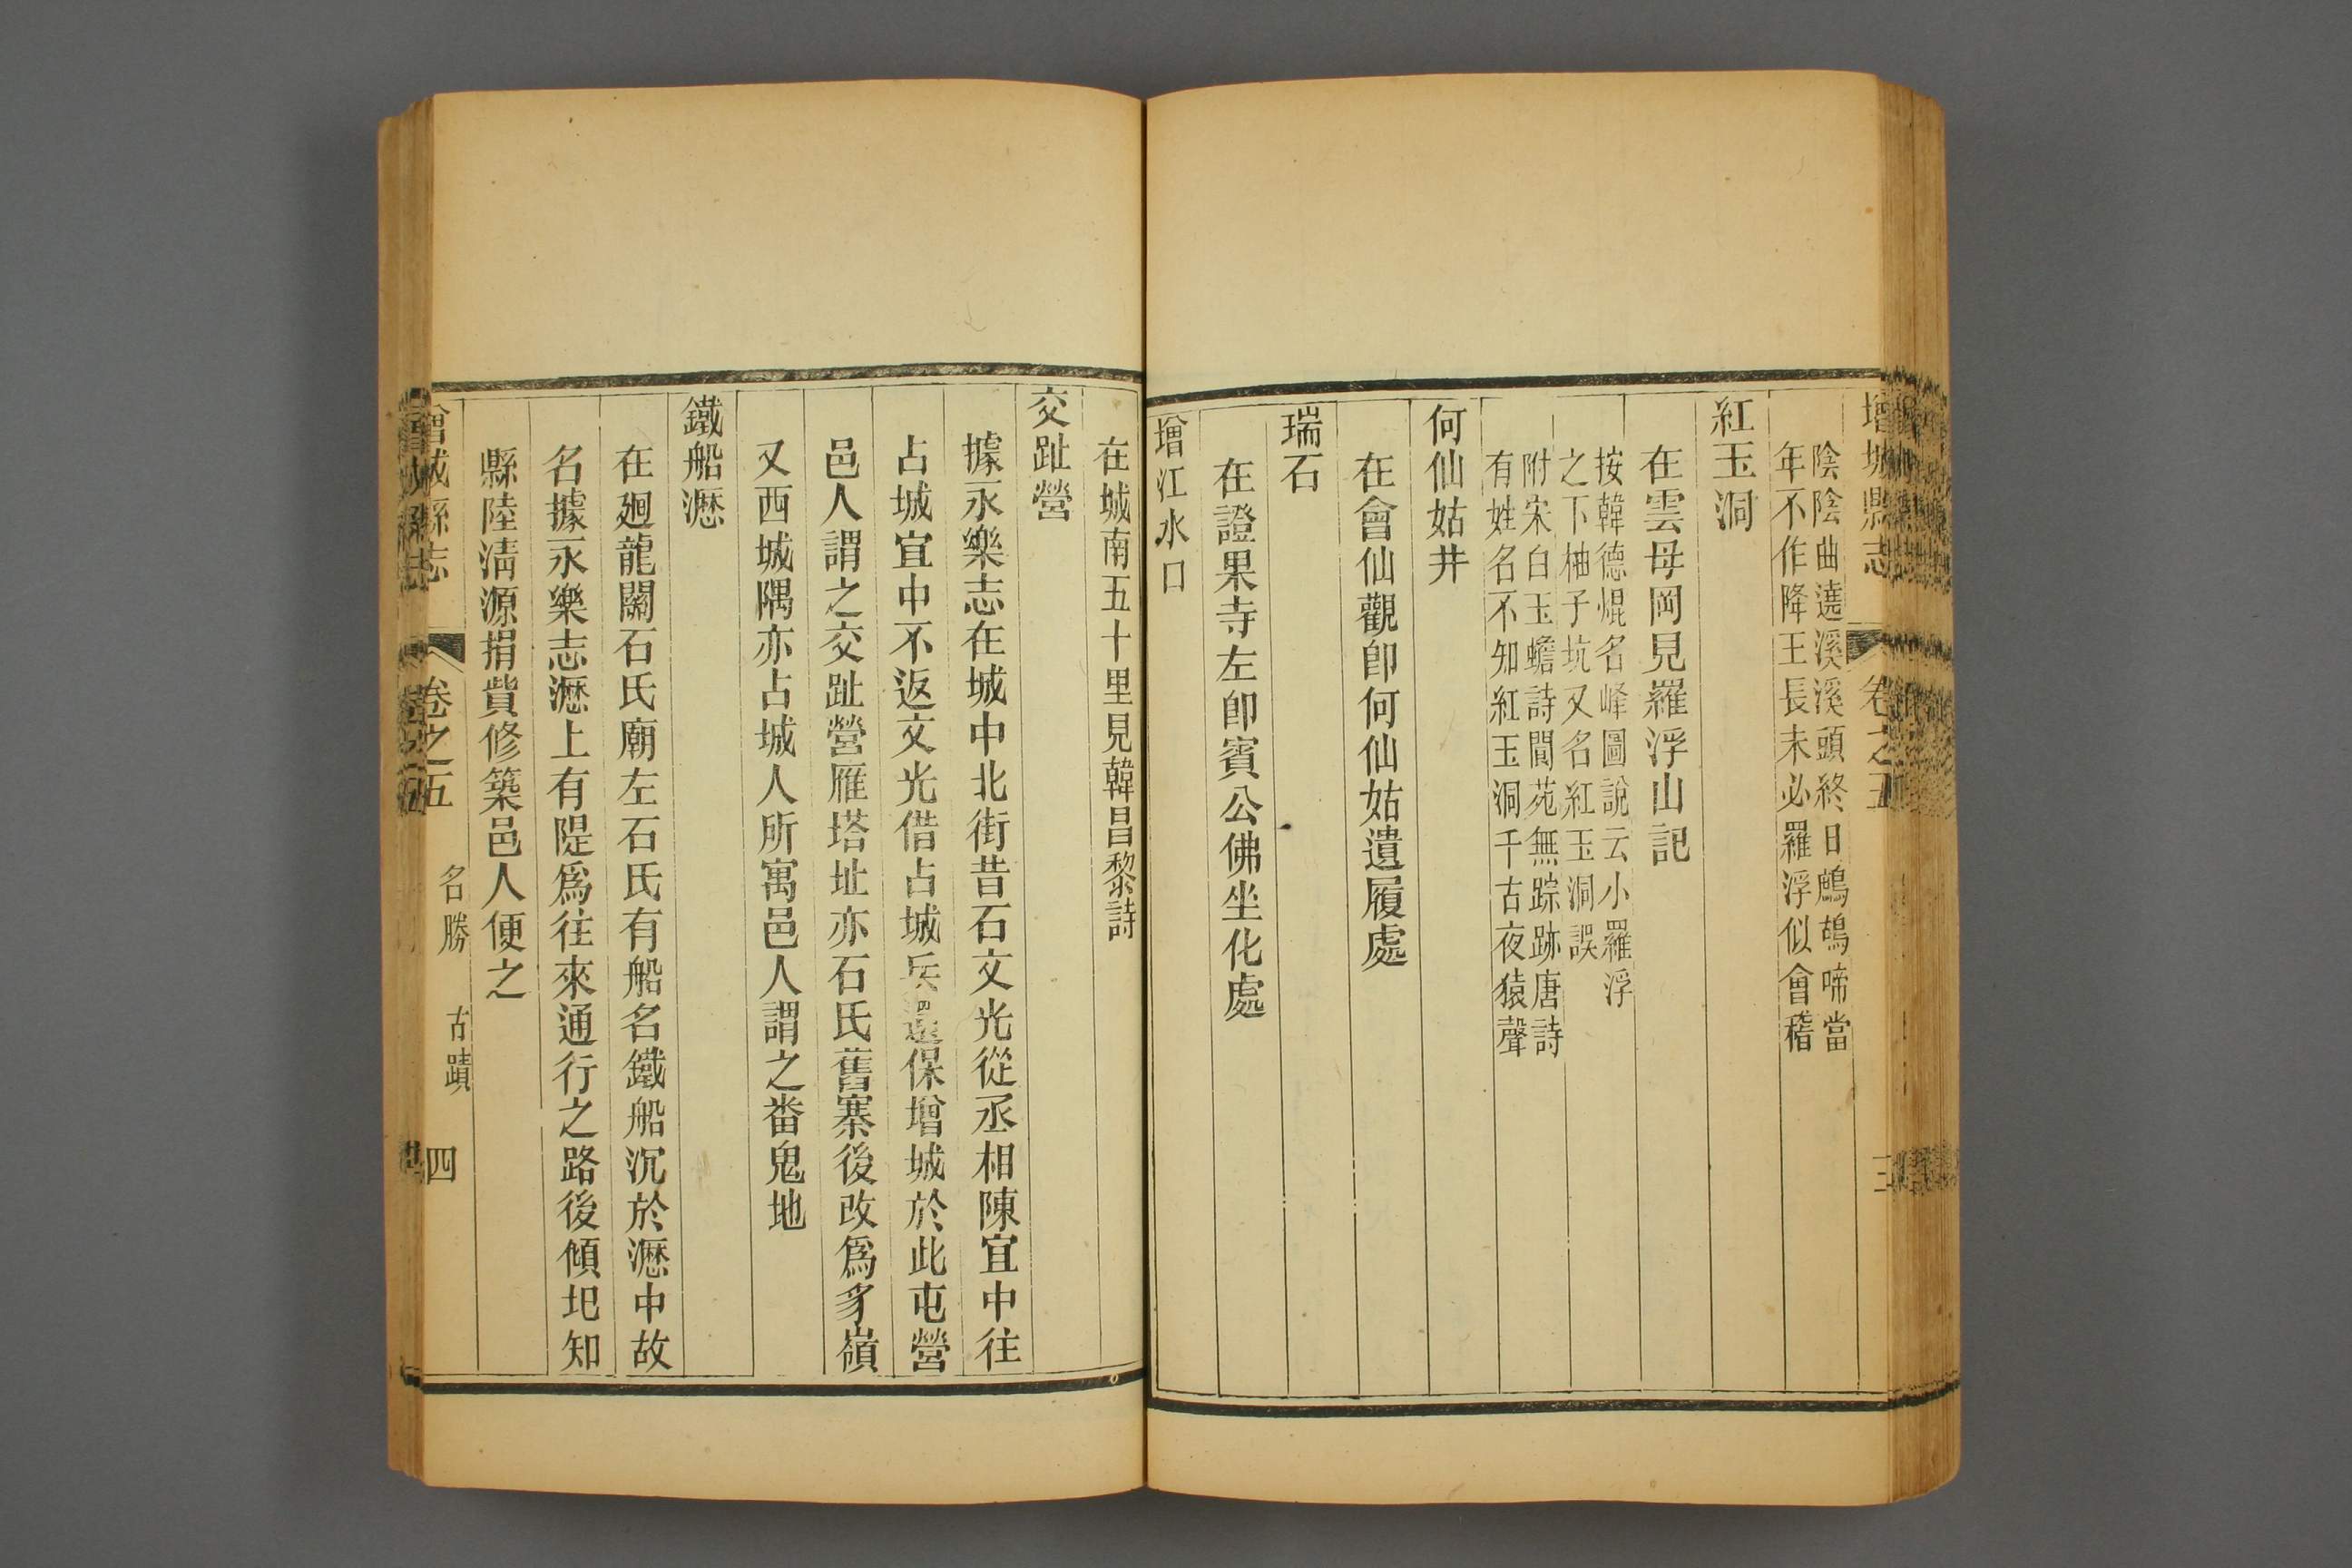 增城縣志 卷之五 三
陰陰曲遶溪溪頭終日鷓鴣啼當
年不作降王長未必羅浮似會稽
紅玉洞
在雲母岡見羅浮山記
按韓德焜名峰圖說云小羅浮
之下柚子坑又名紅玉洞誤
附宋白玉蟾詩閬苑無踪跡唐詩
有姓名不知紅玉洞千古夜猿聲
何仙姑井
在會仙觀卽何仙姑遺履處
瑞石
在證果寺左卽賓公佛坐化處
增江水口
在城南五十里見韓昌黎詩
交趾營
據永樂志在城中北街昔石文光從丞相陳宜中往
占城宜中不返文光借占城兵還保增城於此屯營
邑人謂之交趾營雁塔址亦石氏舊寨後改爲豸嶺
又西城隅亦占城人所寓邑人謂之畨鬼地
鐵船瀝
在廻龍關石氏廟左石氏有船名鐵船沉於瀝中故
名據永樂志瀝上有隄爲往來通行之路後傾圯知
縣陸淸源捐貲修築邑人便之
增城縣志 卷之五 名勝 古蹟 四